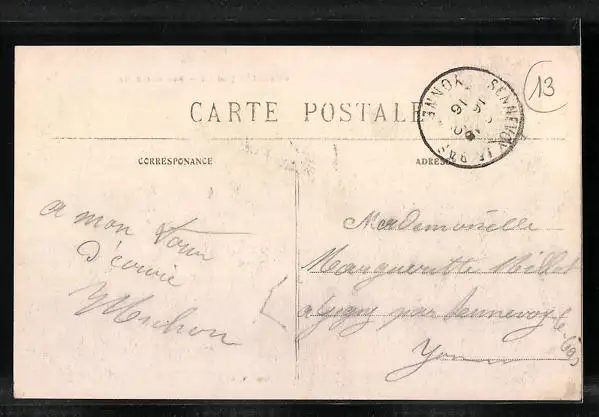 13
CARTE POSTALE
SENNEVOY LE BAS
YONNE
16
CORRESPONANCE
ADRESSE
a mon tour
D'écrire
Mademoiselle
Marguerite Millot
a Gigny par Sennevoy le Bas
Yonne